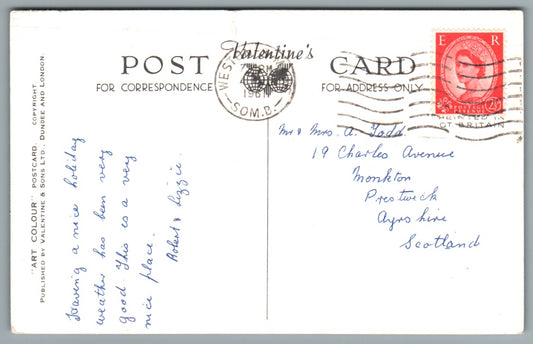 POST Valentine's CARD
FOR CORRESPONDENCE
FOR ADDRESS ONLY
PRINTED IN
GT BRITAIN
WES
1961
SOM.D.
E R
POSTAGE
"ART COLOUR" POSTCARD. COPYRIGHT.
PUBLISHED BY VALENTINE & SONS LTD., DUNDEE AND LONDON.
Having a nice holiday
weather has been very
good This is a very
nice place.
Robert & Lizzie.
Mr & Mrs. A. Todd
19 Charles Avenue
Monkton
Prestwick
Ayrshire
Scotland